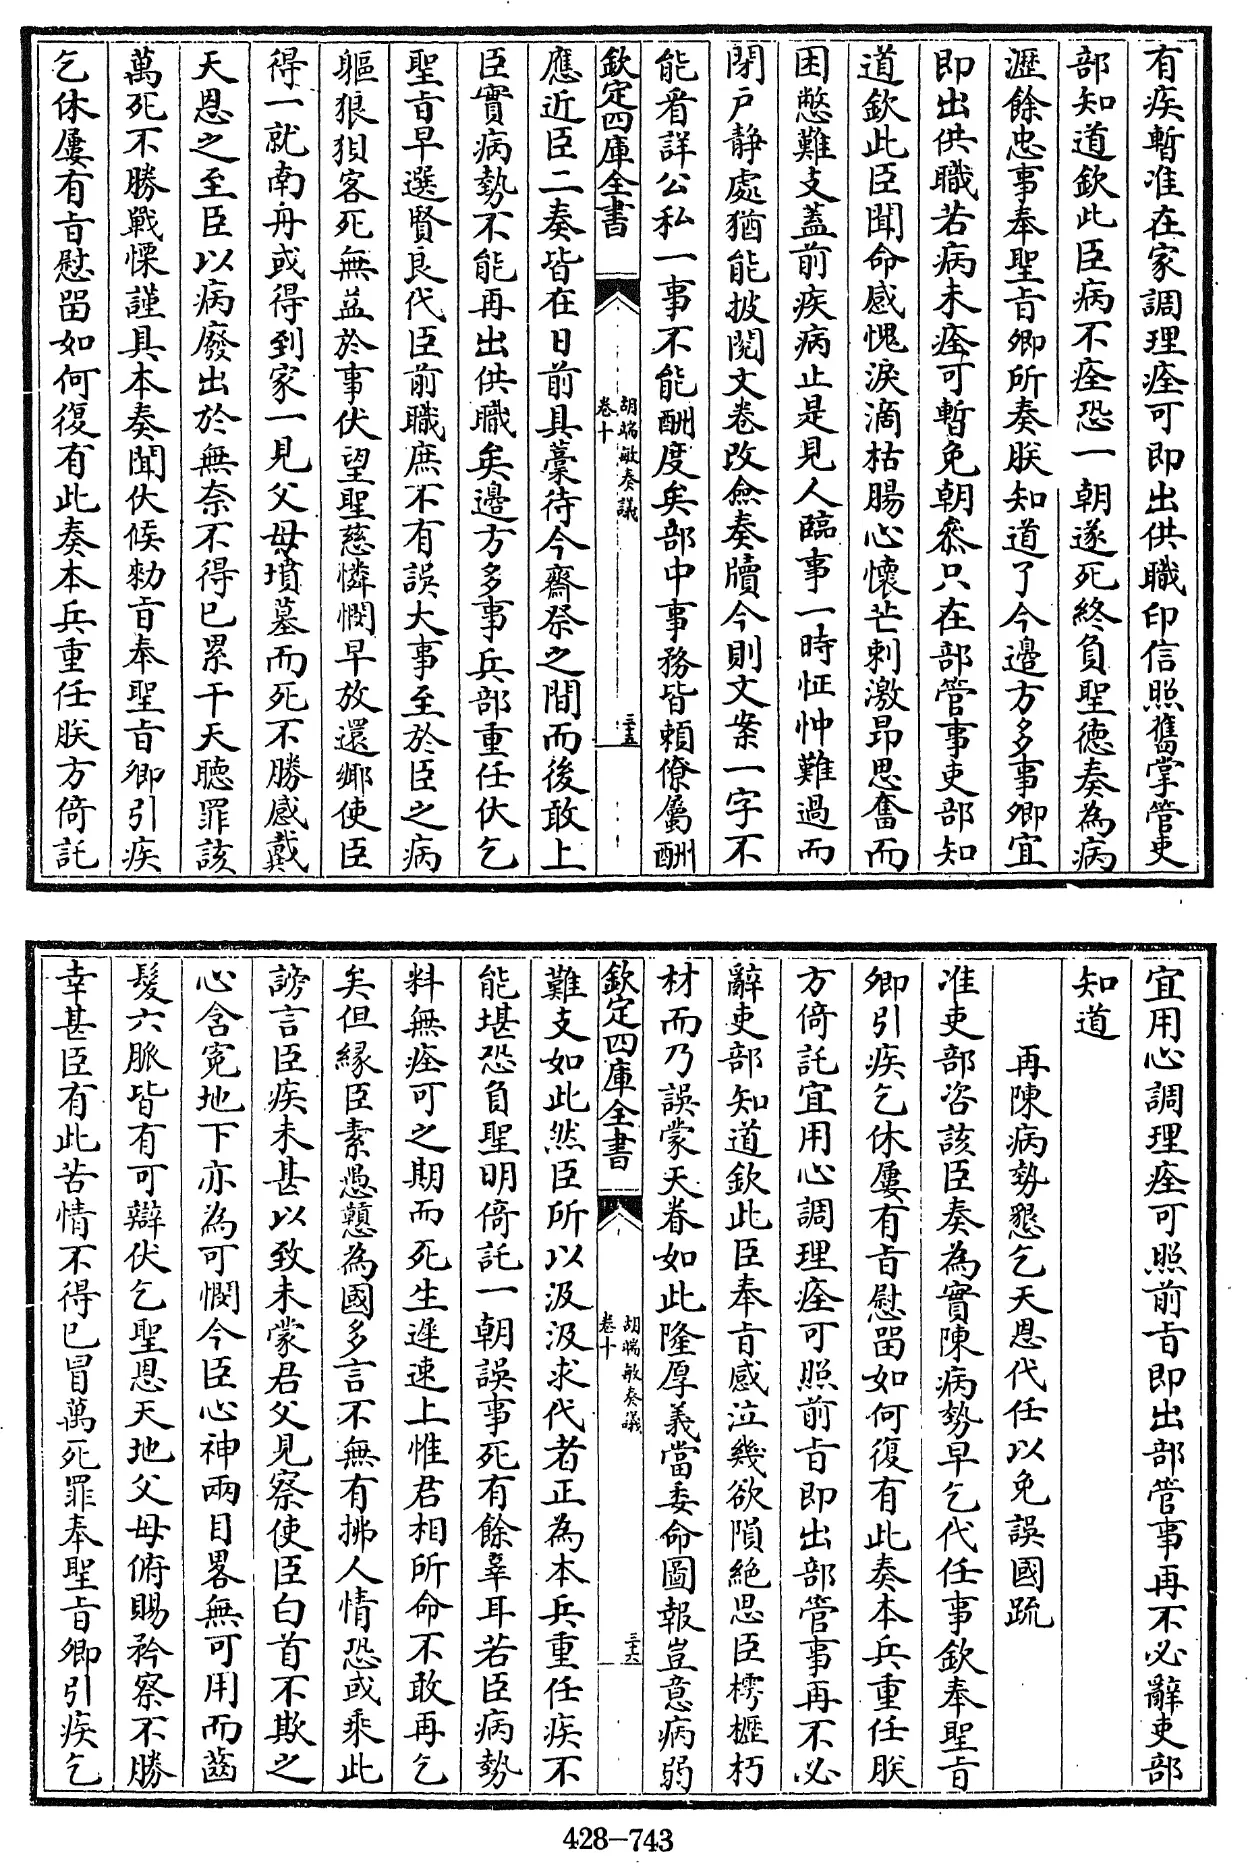 有疾暫准在家調理痊可即出供職印信照舊掌管吏
部知道欽此臣病不痊恐一朝遂死終負聖德奏為病
瀝餘忠事奉聖旨卿所奏朕知道了今邊方多事卿宜
即出供職若病未痊可暫免朝叅只在部管事吏部知
道欽此臣聞命感愧淚滴枯腸心懷芒刺激昂思奮而
困憊難支蓋前疾病止是見人臨事一時怔忡難過而
閉戶靜處猶能披閱文卷改僉奏牘今則文案一字不
能看詳公私一事不能酬度矣部中事務皆賴僚屬酬
欽定四庫全書
胡端敏奏議
卷十
三十五
應近臣二奏皆在日前具藁待今齋祭之間而後敢上
臣實病勢不能再出供職矣邊方多事兵部重任伏乞
聖旨早選賢良代臣前職庶不有誤大事至於臣之病
軀狼狽客死無益於事伏望聖慈憐憫早放還鄉使臣
得一就南舟或得到家一見父母墳墓而死不勝感戴
天恩之至臣以病廢出於無奈不得已累干天聽罪該
萬死不勝戰慄謹具本奏聞伏候勑旨奉聖旨卿引疾
乞休屢有旨慰留如何復有此奏本兵重任朕方倚託
宜用心調理痊可照前旨即出部管事再不必辭吏部
知道
再陳病勢懇乞天恩代任以免誤國疏
准吏部咨該臣奏為實陳病勢早乞代任事欽奉聖旨
卿引疾乞休屢有旨慰留如何復有此奏本兵重任朕
方倚託宜用心調理痊可照前旨即出部管事再不必
辭吏部知道欽此臣奉旨感泣幾欲隕絕思臣樗櫪朽
材而乃誤蒙天眷如此隆厚義當委命圖報豈意病弱
欽定四庫全書
胡端敏奏議
卷十
三十六
難支如此然臣所以汲汲求代者正為本兵重任疾不
能堪恐負聖明倚託一朝誤事死有餘辜耳若臣病勢
料無痊可之期而死生遲速上惟君相所命不敢再乞
矣但緣臣素愚戇為國多言不無有拂人情恐或乘此
謗言臣疾未甚以致未蒙君父見察使臣白首不欺之
心含寃地下亦為可憫今臣心神兩目畧無可用而齒
髮六脈皆有可辯伏乞聖恩天地父母俯賜矜察不勝
幸甚臣有此苦情不得已冒萬死罪奉聖旨卿引疾乞
428-743